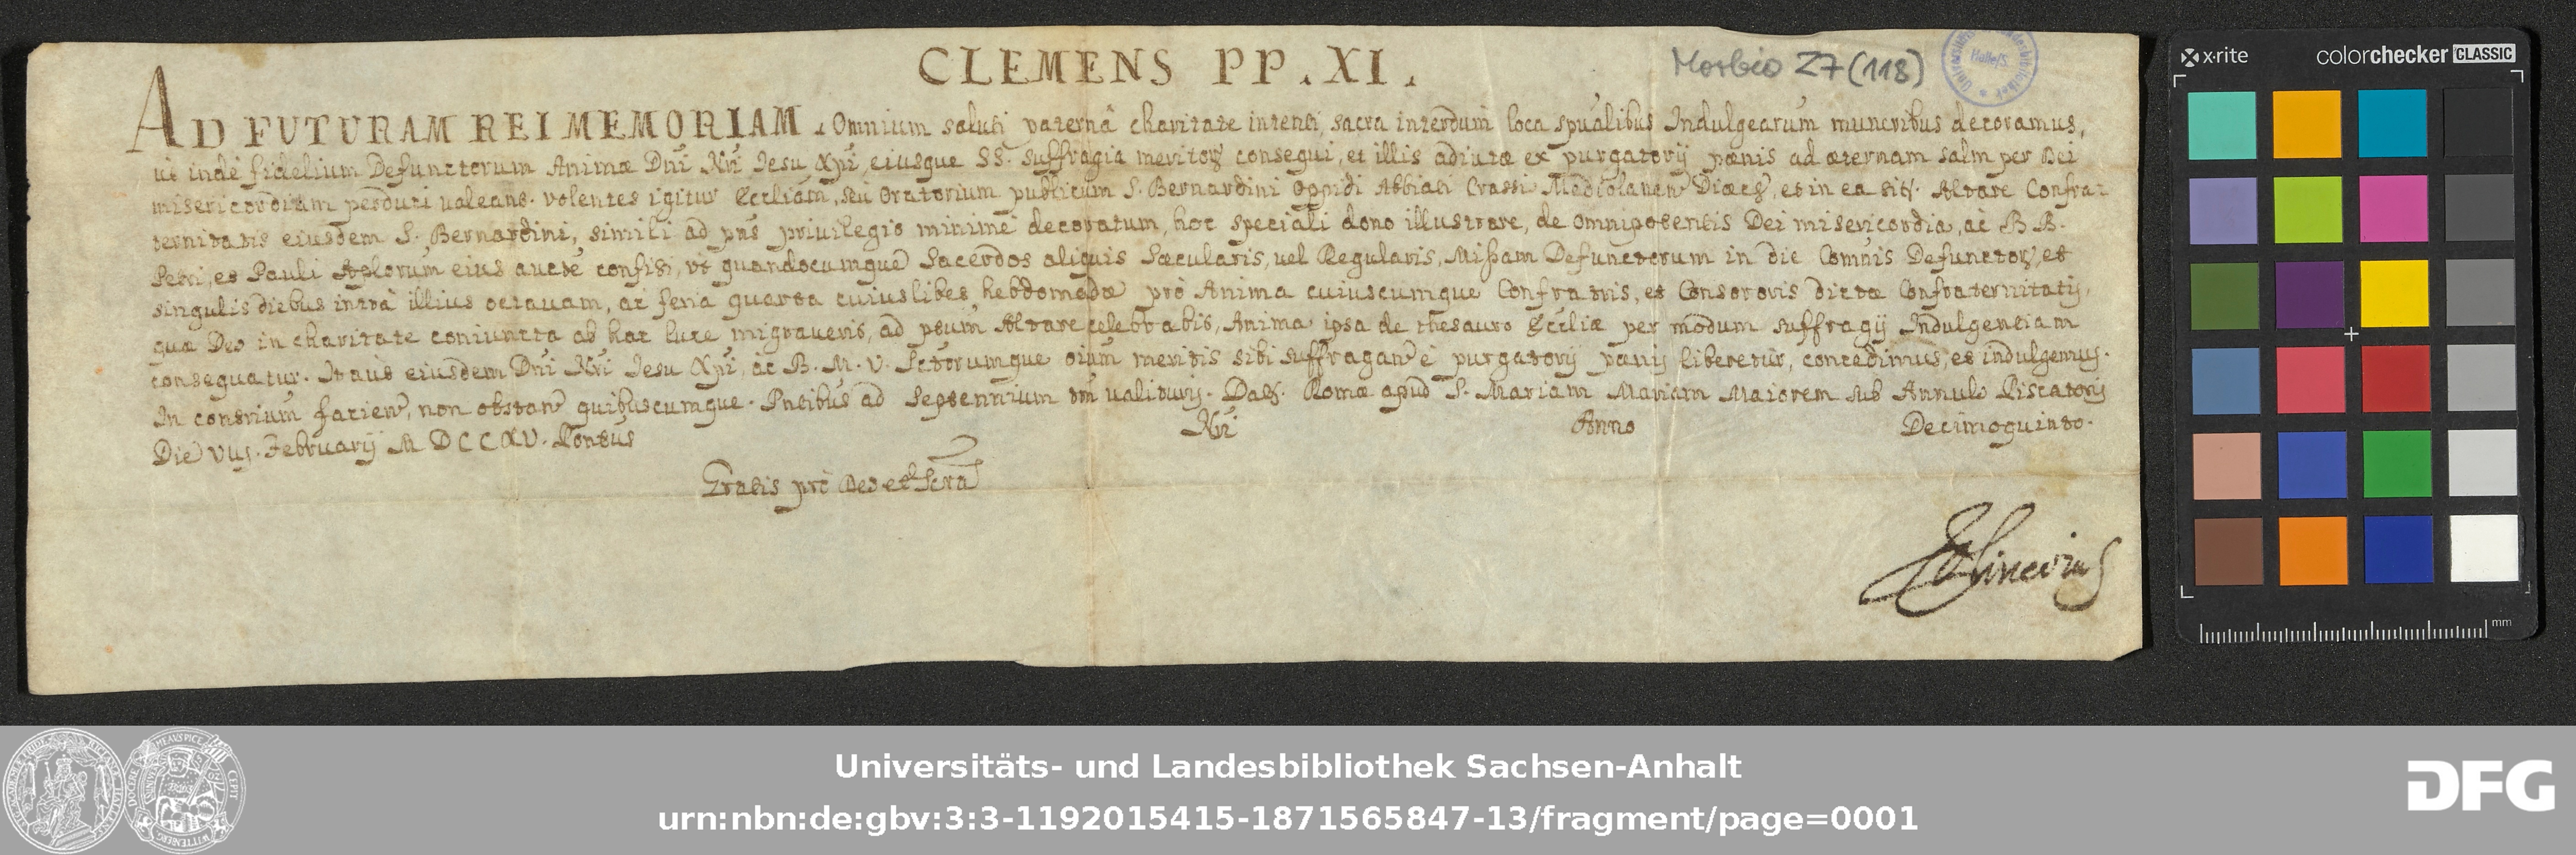 CLEMENS PP. XI.
Morbio Z7 (118)
x·rite colorchecker CLASSIC
AD FUTURAM REI MEMORIAM. Omnium saluti paternâ charitate intenti, sacra interdum loca spũalibus Indulgearum muneribus decoramus,
ut inde fidelium Defunctorum Animæ Dñi Nři Jesu Xpi, eiusque SS. suffragia meritoꝝ consequi, et illis adiutæ ex purgatorij pœnis ad æternam salm per Dei
misericordiam perduci valeant. Volentes igitur Eccliam, seu Oratorium publicum S. Bernardini oppidi Abbiati Crassi Mediolanen Diœces, et in ea sit. Altare Confra-
ternitatis eiusdem S. Bernardini, simili ad pñs privilegio minimè decoratum, hoc speciali dono illustrare, de omnipotentis Dei misericordia, ac BB.
Petri, et Pauli Aplorum eius aucte confisi, vt quandocumque Sacerdos aliquis Sæcularis, vel Regularis, Missam Defunctorum in die Comõis Defunctoꝝ, et
singulis diebus intrà illius octauam, ac feria quarta cuiuslibet hebdomadæ prò Anima cuiuscumque Confratris, et Consororis dictæ Confraternitatis,
quæ Deo in charitate coniuncta ab hac luce migraveris, ad pñum Altare celebrabit, Anima ipsa de thesauro Eccliæ per modum suffragij Indulgentiam
consequatur. Ita ut eiusdem Dñi Nři Jesu Xpi, ac B. M. V. Sctorumque oium meritis sibi suffragan è purgatorij pœnis liberetur, concedimus, et indulgemus.
In contrium facien, non obstan quibuscumque. Pñtibus ad Septennium tm valituris. Dat. Romæ apud S. Mariam Mariam Maiorem sub Annulo Piscatoris
Die VII. Februarij MDCCXV. Pontus Nři Anno Decimoquinto.
Gratis prò Deo et Scra
mm
Universitäts- und Landesbibliothek Sachsen-Anhalt
urn:nbn:de:gbv:3:3-1192015415-1871565847-13/fragment/page=0001
DFG